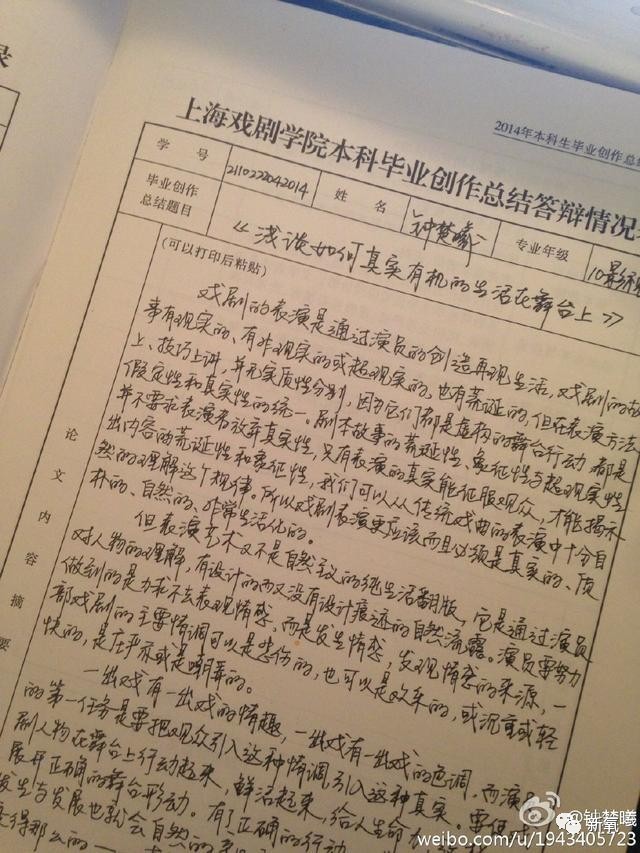 录
2014年本科生毕业创作总结
上海戏剧学院本科毕业创作总结答辩情况
学 号
2110222042014
姓 名
钟楚曦
专业年级
10影
毕业创作
总结题目
《浅谈如何真实有机的生活在舞台上》
(可以打印后粘贴)
论文内容摘要
戏剧的表演是通过演员的创造再现生活,戏剧的故
事有现实的、有非现实的或超现实的,也有荒诞的,但在表演方法
上、技巧上讲,并无实质性分别,因为它们都是虚构的舞台行动 都是
假定性和真实性的统一。剧本故事的荒诞性、象征性与超现实性
并不要求表演者放弃真实性,只有表演的真实能征服观众,才能揭示
出内容的荒诞性和象征性,我们可以从传统戏曲的表演中十分自
然的理解这个规律。所以戏剧表演更应该而且必须是真实的、质
朴的、自然的、非常生活化的。
但表演艺术又不是自然主义的纯生活翻版,它是通过演员
对人物的理解,有设计的而又没有设计痕迹的自然流露。演员要努力
做到的是力求不去表现情感,而是发生情感,发现情感的来源,一
部戏剧的主要情调可以是悲伤的,也可以是欢乐的,或沉重或轻
快的,是庄严亦或是嘲弄的。
一出戏有一出戏的情趣,一出戏有一出戏的色调,而演员
的第一任务是要把观众引入这种情调,引入这种真实。要使
剧人物在舞台上行动起来,鲜活起来,给人生命力
展开正确的舞台形动。有了正确的行动
发生与发展也就会自然的
得那么的一
@钟楚曦
新氧
weibo.com/u/1943405723